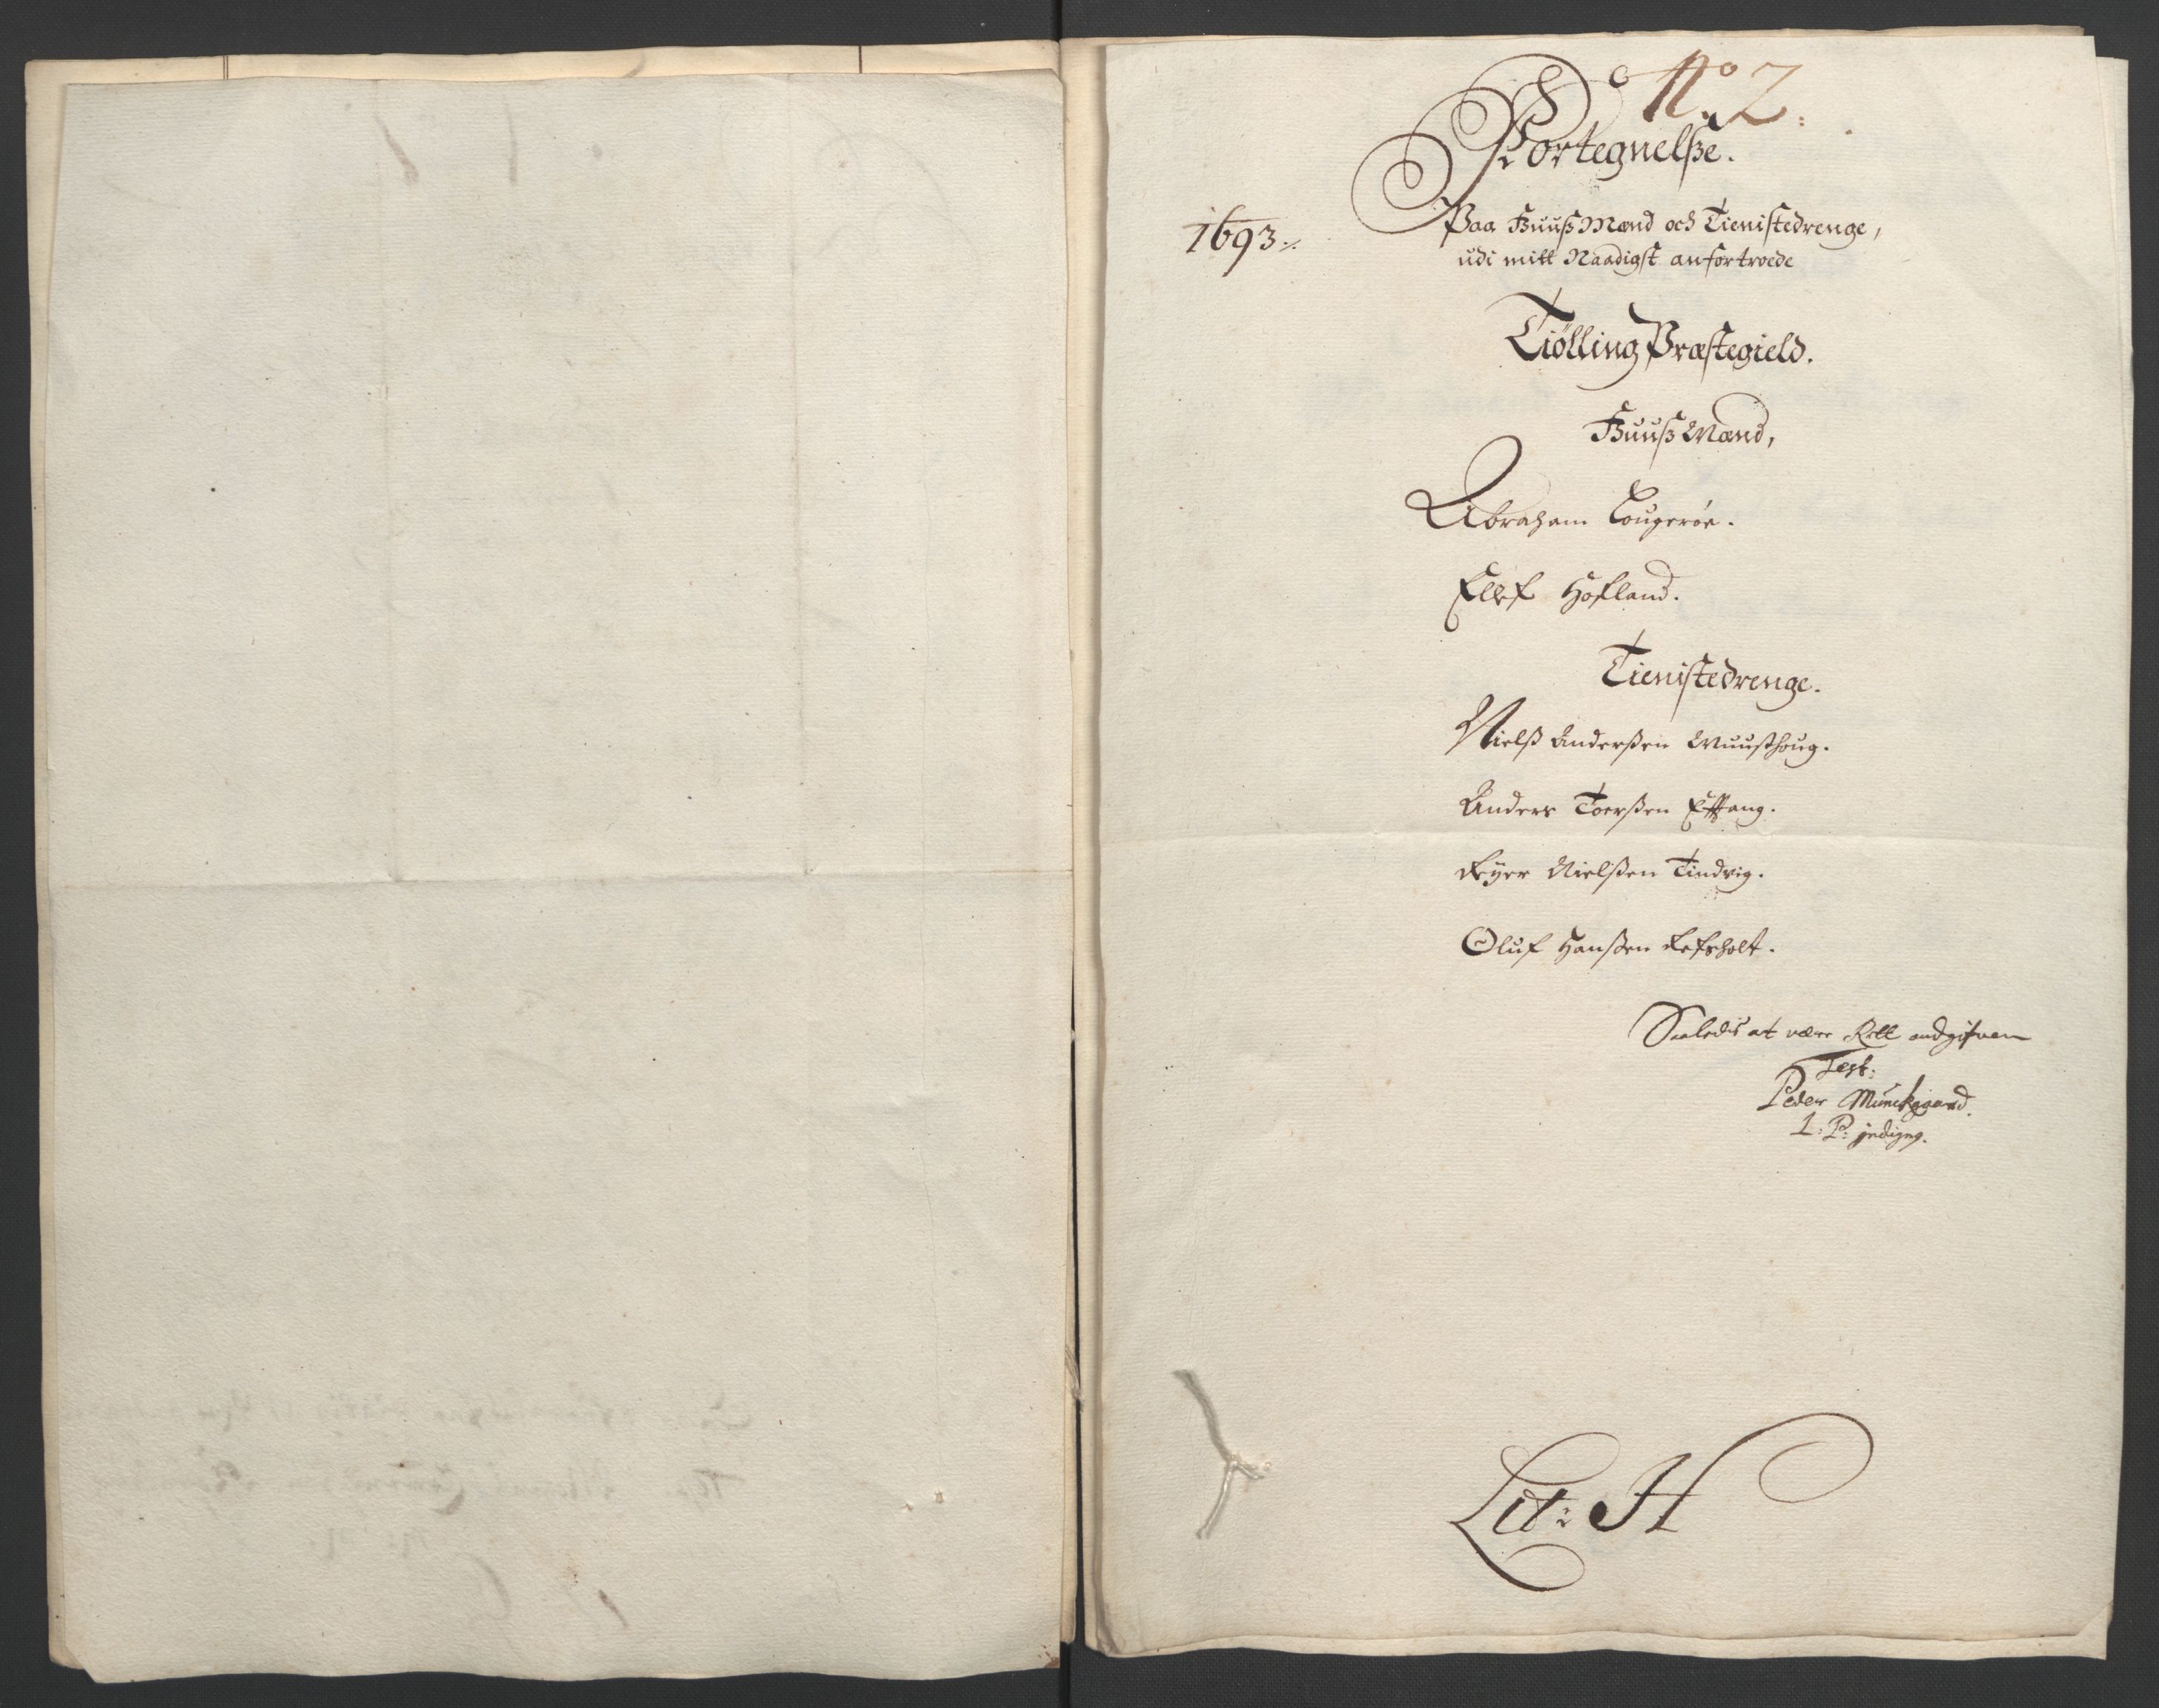 No 2.
Fortegnelsse.
1693
Paa HuussMænd och Tienistedrenge,
udi mitt Naadigst anfortroede
Tiölling Præstegield.
HuussMænd,
Abraham Lougeröe.
Ellef Hofland.
Tienistedrenge.
Nielss Anderssen Muusthoug.
Anders Toerssen Eftang.
Reÿer Nielssen Tindvig.
Oluf Hanssen Refsholt.
Saaledis at være Rett andgifven
Test:
Peder Munckgaard
Lit: H